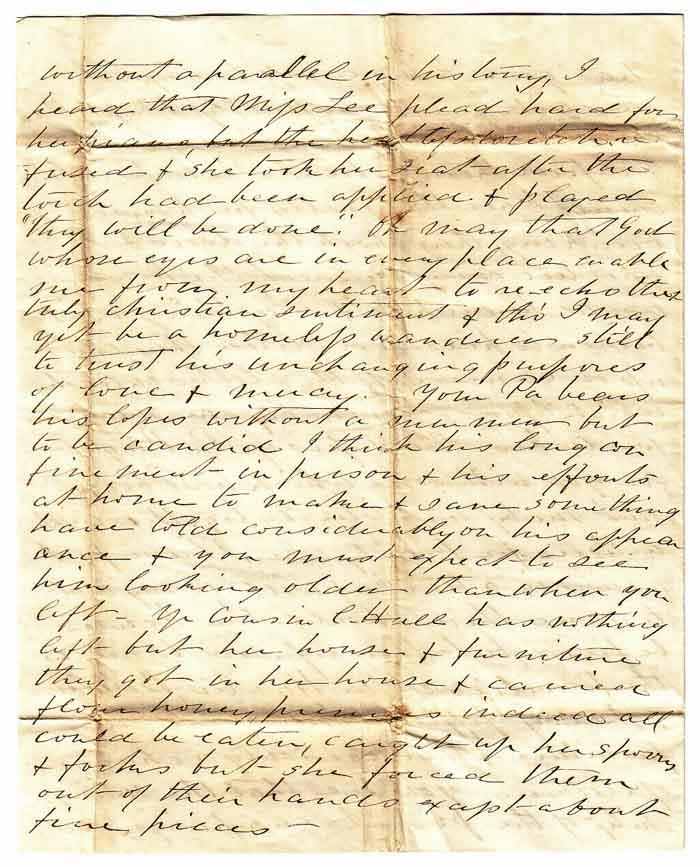 without a parallel in history, I
heard that Miss Lee plead hard for
her piano, but the heartless wretch re
fused & she took her seat after the
torch had been applied & played
"thy will be done". Oh may that God
whose eyes are in every place enable
me from my heart to re-echo that
truly christian sentiment & tho' I may
yet be a homeless wanderer still
to trust his unchanging purposes
of love & mercy. Your Pa bears
his losses without a murmur but
to be candid I think his long con
finement in prison & his efforts
at home to make & save something
have told considerably on his appear
ance & you must expect to see
him looking older than when you
left - Yr Cousin C Hall has nothing
left but her house & furniture
they got in her house & carried
flour honey preserves indeed all
could be eaten, caught up her spoons
& forks but she forced them
out of their hands except about
five pieces -